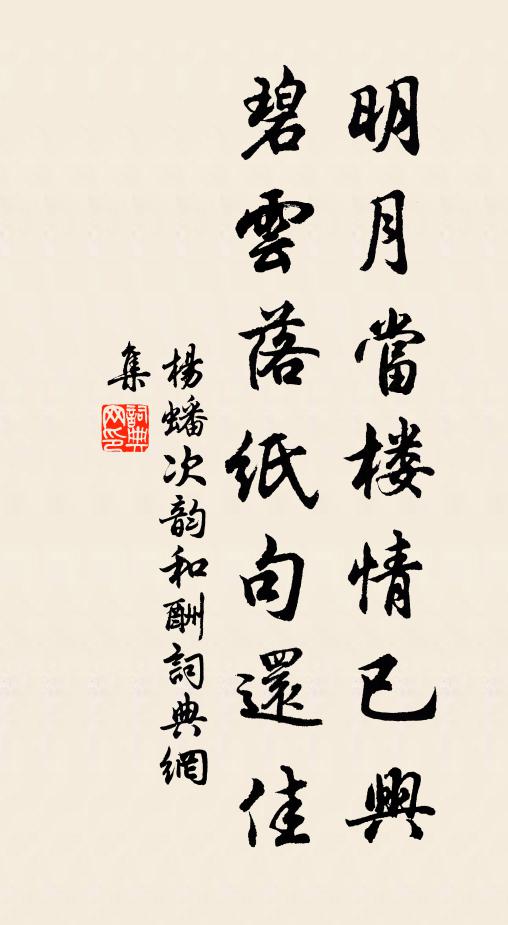 明月當楼情已興
碧雲落紙句還佳
楊蟠次韵和酬詞典網
集
詞典
网印